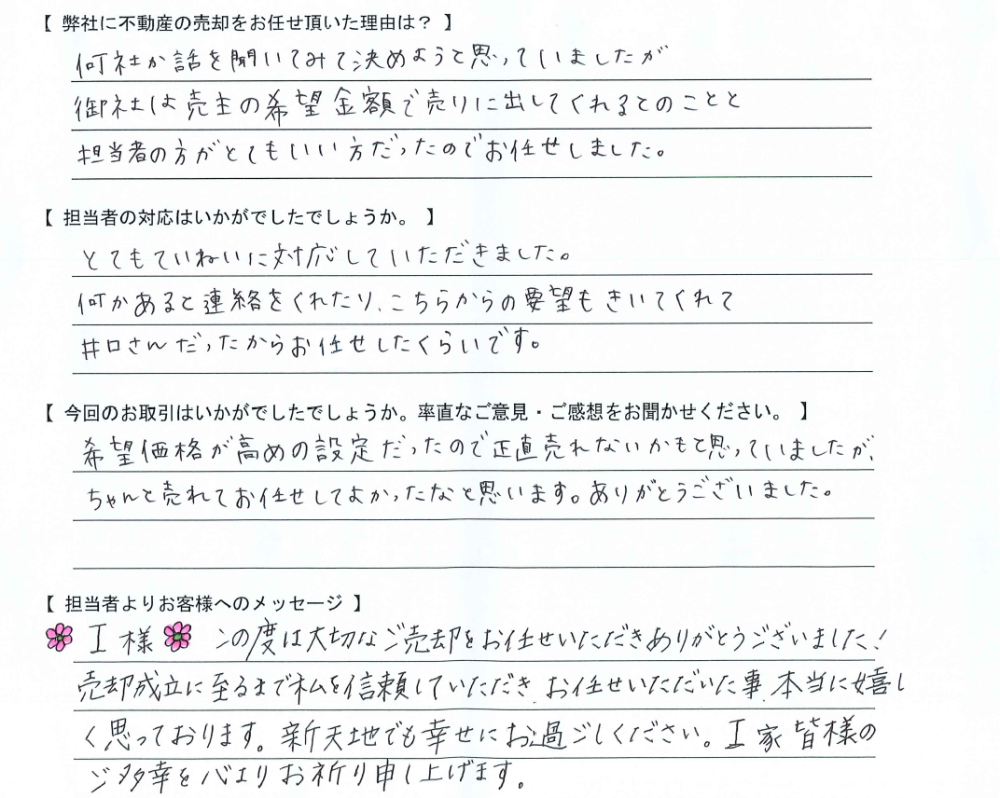 【 弊社に不動産の売却をお任せ頂いた理由は？ 】
何社か話を聞いてみて決めようと思っていましたが
御社は売主の希望金額で売りに出してくれるとのことと
担当者の方がとてもいい方だったのでお任せしました。
【 担当者の対応はいかがでしたでしょうか。 】
とてもていねいに対応していただきました。
何かあると連絡をくれたり、こちらからの要望もきいてくれて
井口さんだったからお任せしたくらいです。
【 今回のお取引はいかがでしたでしょうか。率直なご意見・ご感想をお聞かせください。 】
希望価格が高めの設定だったので正直売れないかもと思っていましたが、
ちゃんと売れてお任せしてよかったなと思います。ありがとうございました。
【 担当者よりお客様へのメッセージ 】
I 様 この度は大切なご売却をお任せいただきありがとうございました！
売却成立に至るまで私を信頼していただき、お任せいただいた事、本当に嬉し
く思っております。新天地でも幸せにお過ごしください。I 家 皆様の
ご多幸を心よりお祈り申し上げます。